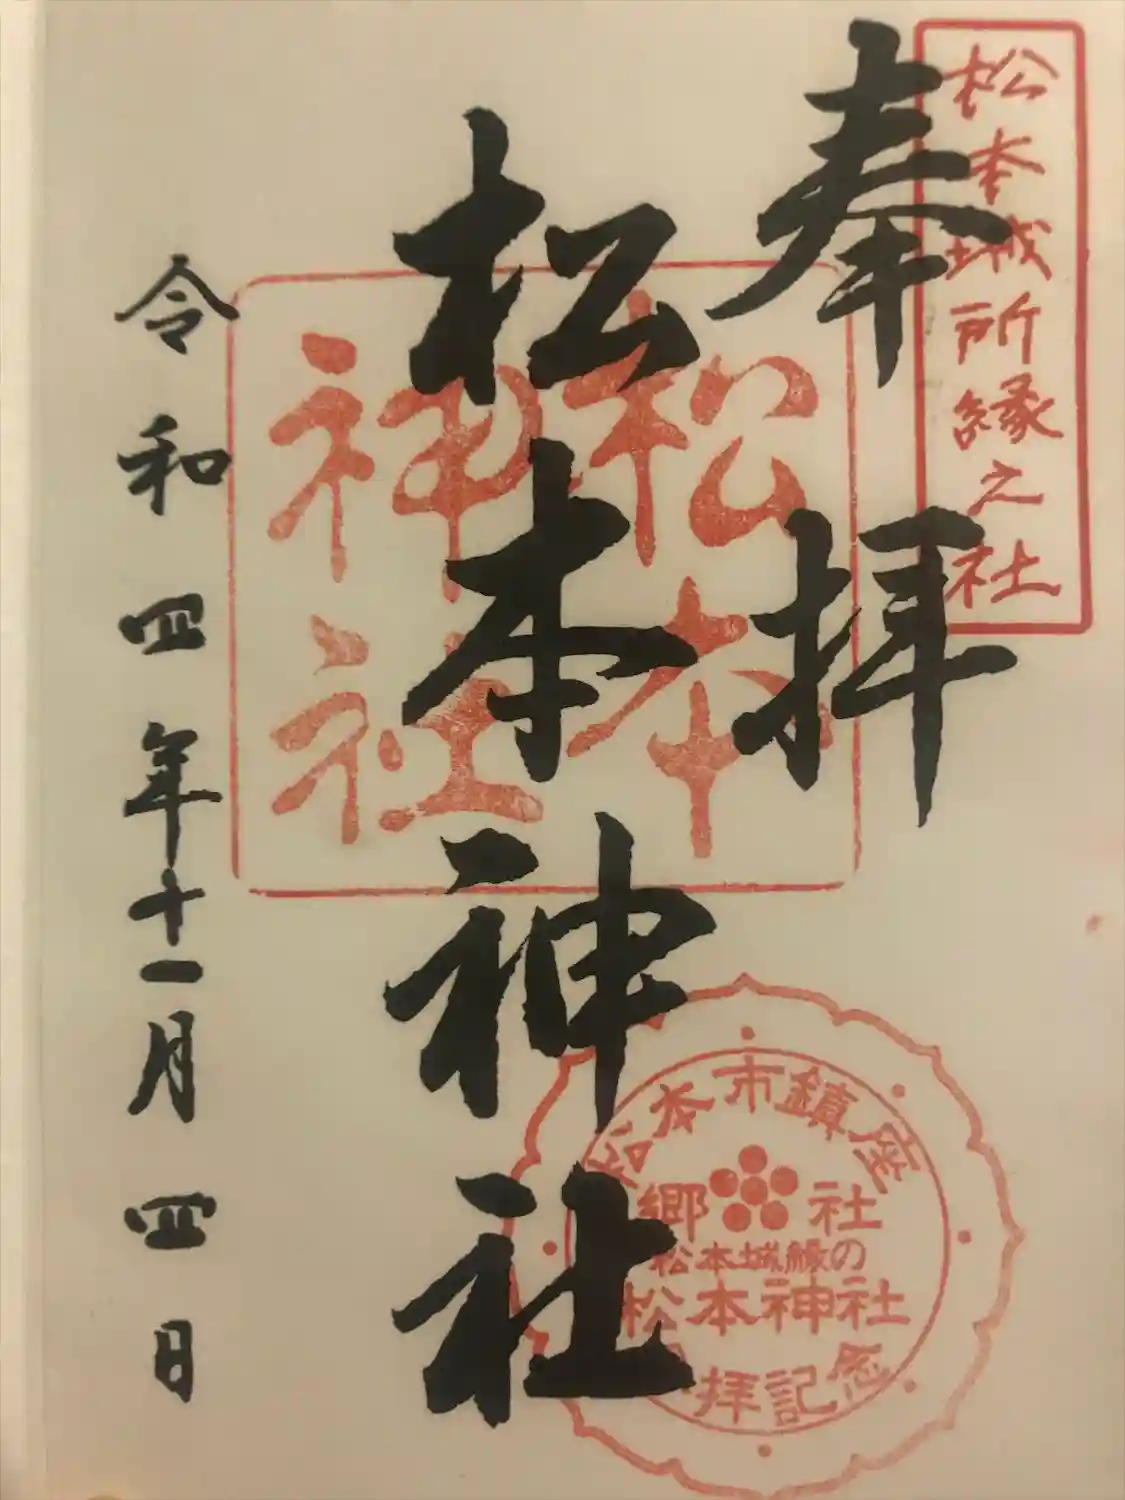 松本城所縁之社
奉拝
松本神社
松本
神社
令和四年十一月四日
松本市鎮座
郷社
松本城縁の
松本神社
拝記念